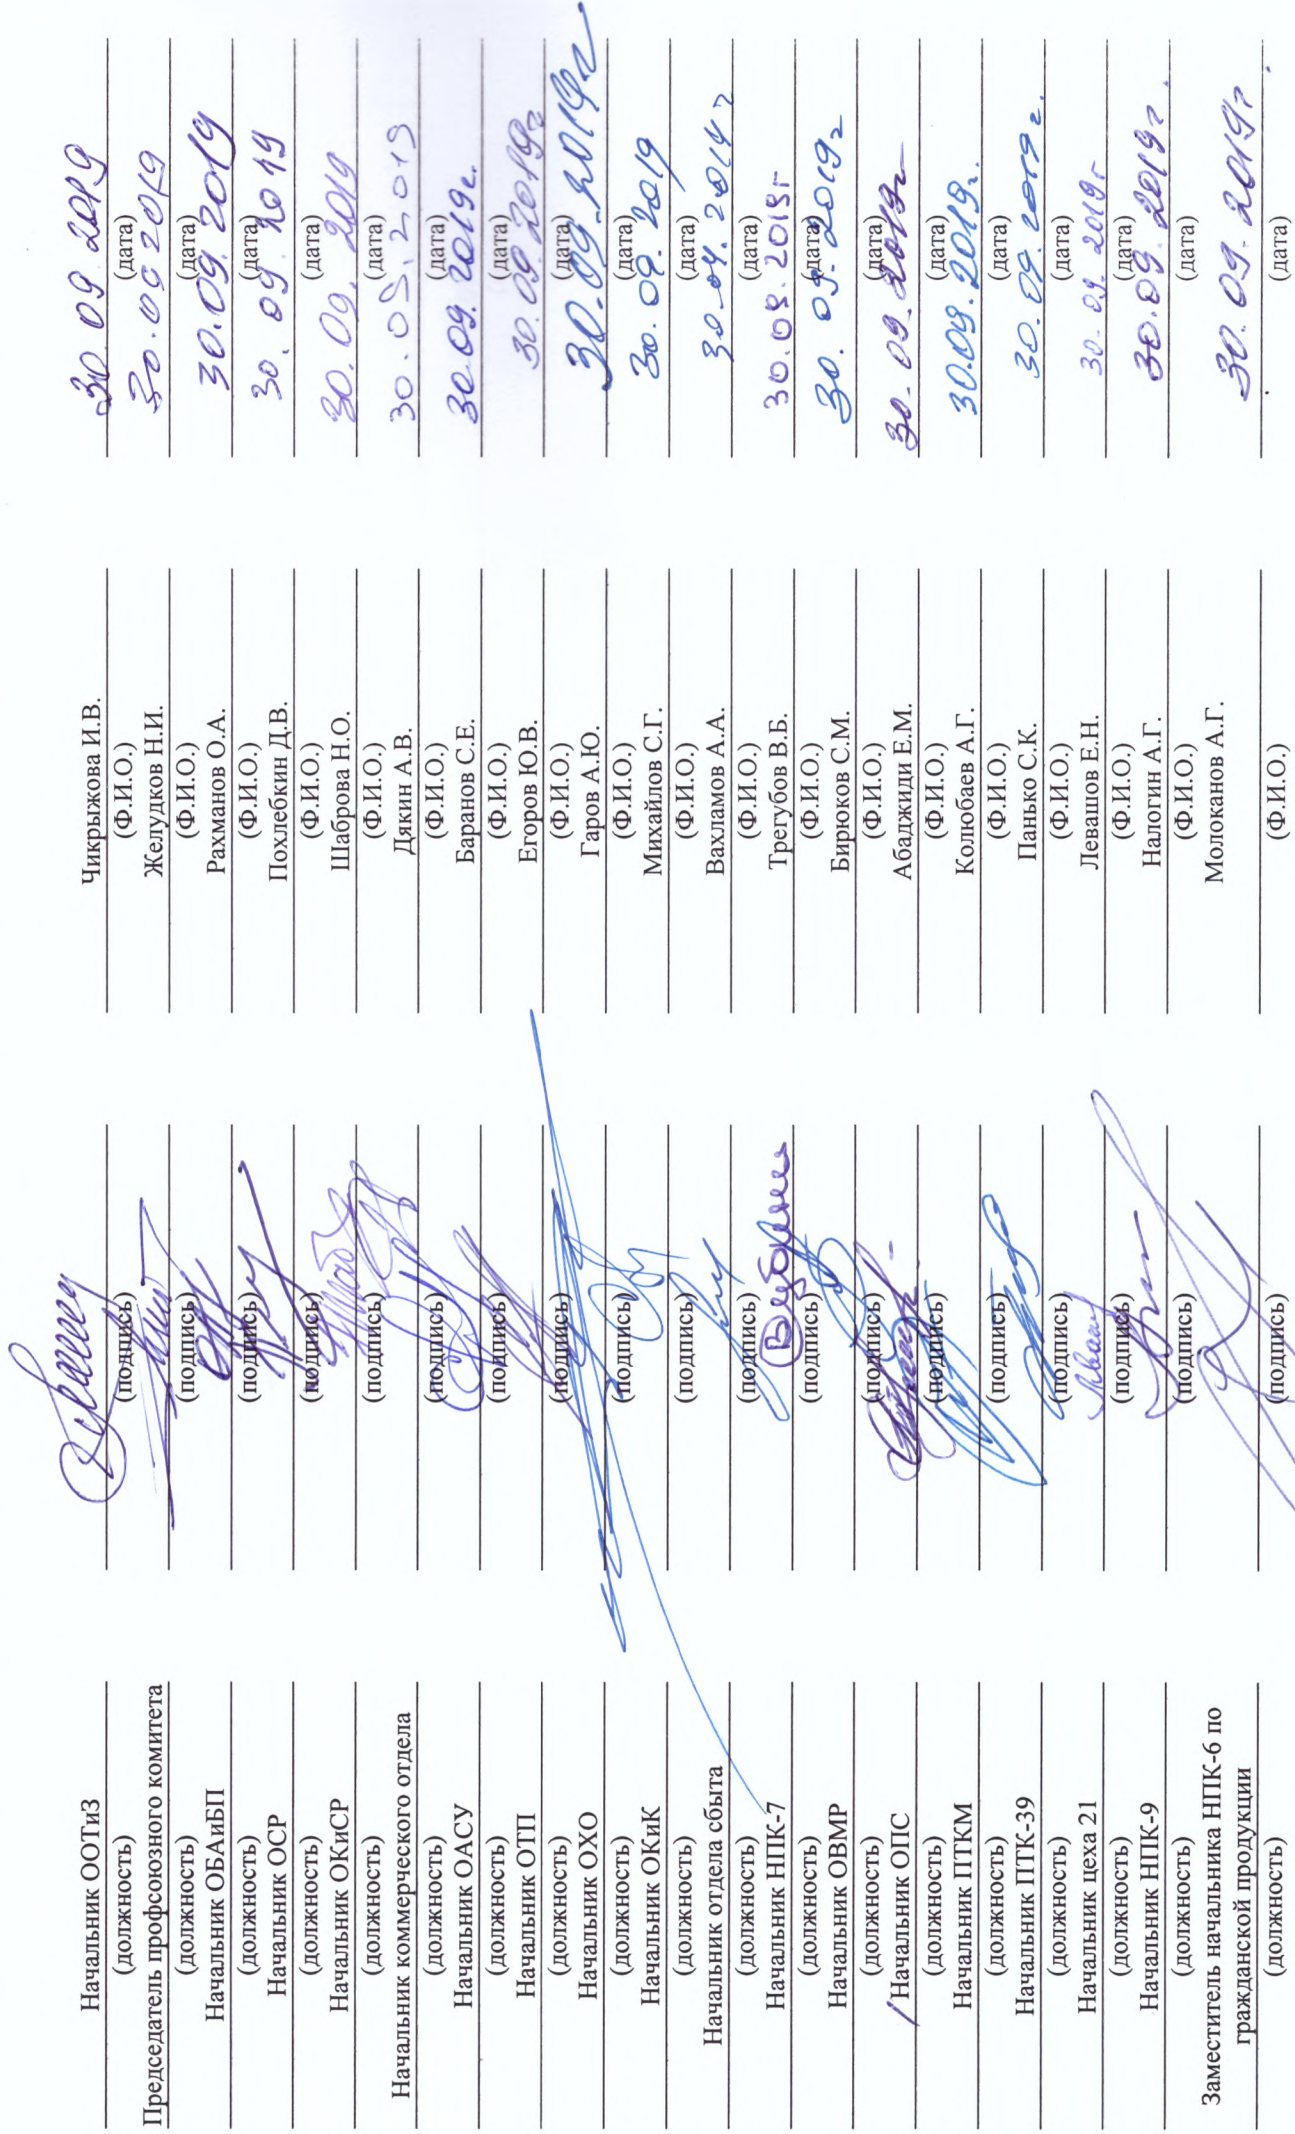 Начальник ООТиЗ Чикрыжова И.В. 30 09 2019
(должность) (подпись) (Ф.И.О.) (дата)
Председатель профсоюзного комитета Желудков Н.И. 30.09 2019
(должность) (подпись) (Ф.И.О.) (дата)
Начальник ОБАиБП Рахманов О.А. 30.09.2019
(должность) (подпись) (Ф.И.О.) (дата)
Начальник ОСР Похлебкин Д.В. 30. 09. 2019
(должность) (подпись) (Ф.И.О.) (дата)
Начальник ОКиСР Шаброва Н.О. 30.09.2019
(должность) (подпись) (Ф.И.О.) (дата)
Начальник коммерческого отдела Дякин А.В. 30.09.2019
(должность) (подпись) (Ф.И.О.) (дата)
Начальник ОАСУ Баранов С.Е. 30.09.2019г.
(должность) (подпись) (Ф.И.О.) (дата)
Начальник ОТП Егоров Ю.В. 30.09.2019г
(должность) (подпись) (Ф.И.О.) (дата)
Начальник ОХО Гаров А.Ю. 30.09.2019г
(должность) (подпись) (Ф.И.О.) (дата)
Начальник ОКиК Михайлов С.Г. 30.09.2019
(должность) (подпись) (Ф.И.О.) (дата)
Начальник отдела сбыта Вахламов А.А. 30.09.2019г
(должность) (подпись) (Ф.И.О.) (дата)
Начальник НПК-7 Трегубов В.Б. 30.09.2019г
(должность) (подпись) (Ф.И.О.) (дата)
Начальник ОВМР Бирюков С.М. 30.09.2019г
(должность) (подпись) (Ф.И.О.) (дата)
Начальник ОПС Абаджиди Е.М. 30.09.2019г
(должность) (подпись) (Ф.И.О.) (дата)
Начальник ПТКМ Колюбаев А.Г. 30.09.2019г.
(должность) (подпись) (Ф.И.О.) (дата)
Начальник ПТК-39 Панько С.К. 30.09.2019г.
(должность) (подпись) (Ф.И.О.) (дата)
Начальник цеха 21 Левашов Е.Н. 30.09.2019г
(должность) (подпись) (Ф.И.О.) (дата)
Начальник НПК-9 Налогин А.Г. 30.09.2019г.
(должность) (подпись) (Ф.И.О.) (дата)
Заместитель начальника НПК-6 по Молоканов А.Г. 30.09.2019г.
гражданской продукции
(должность) (подпись) (Ф.И.О.) (дата)